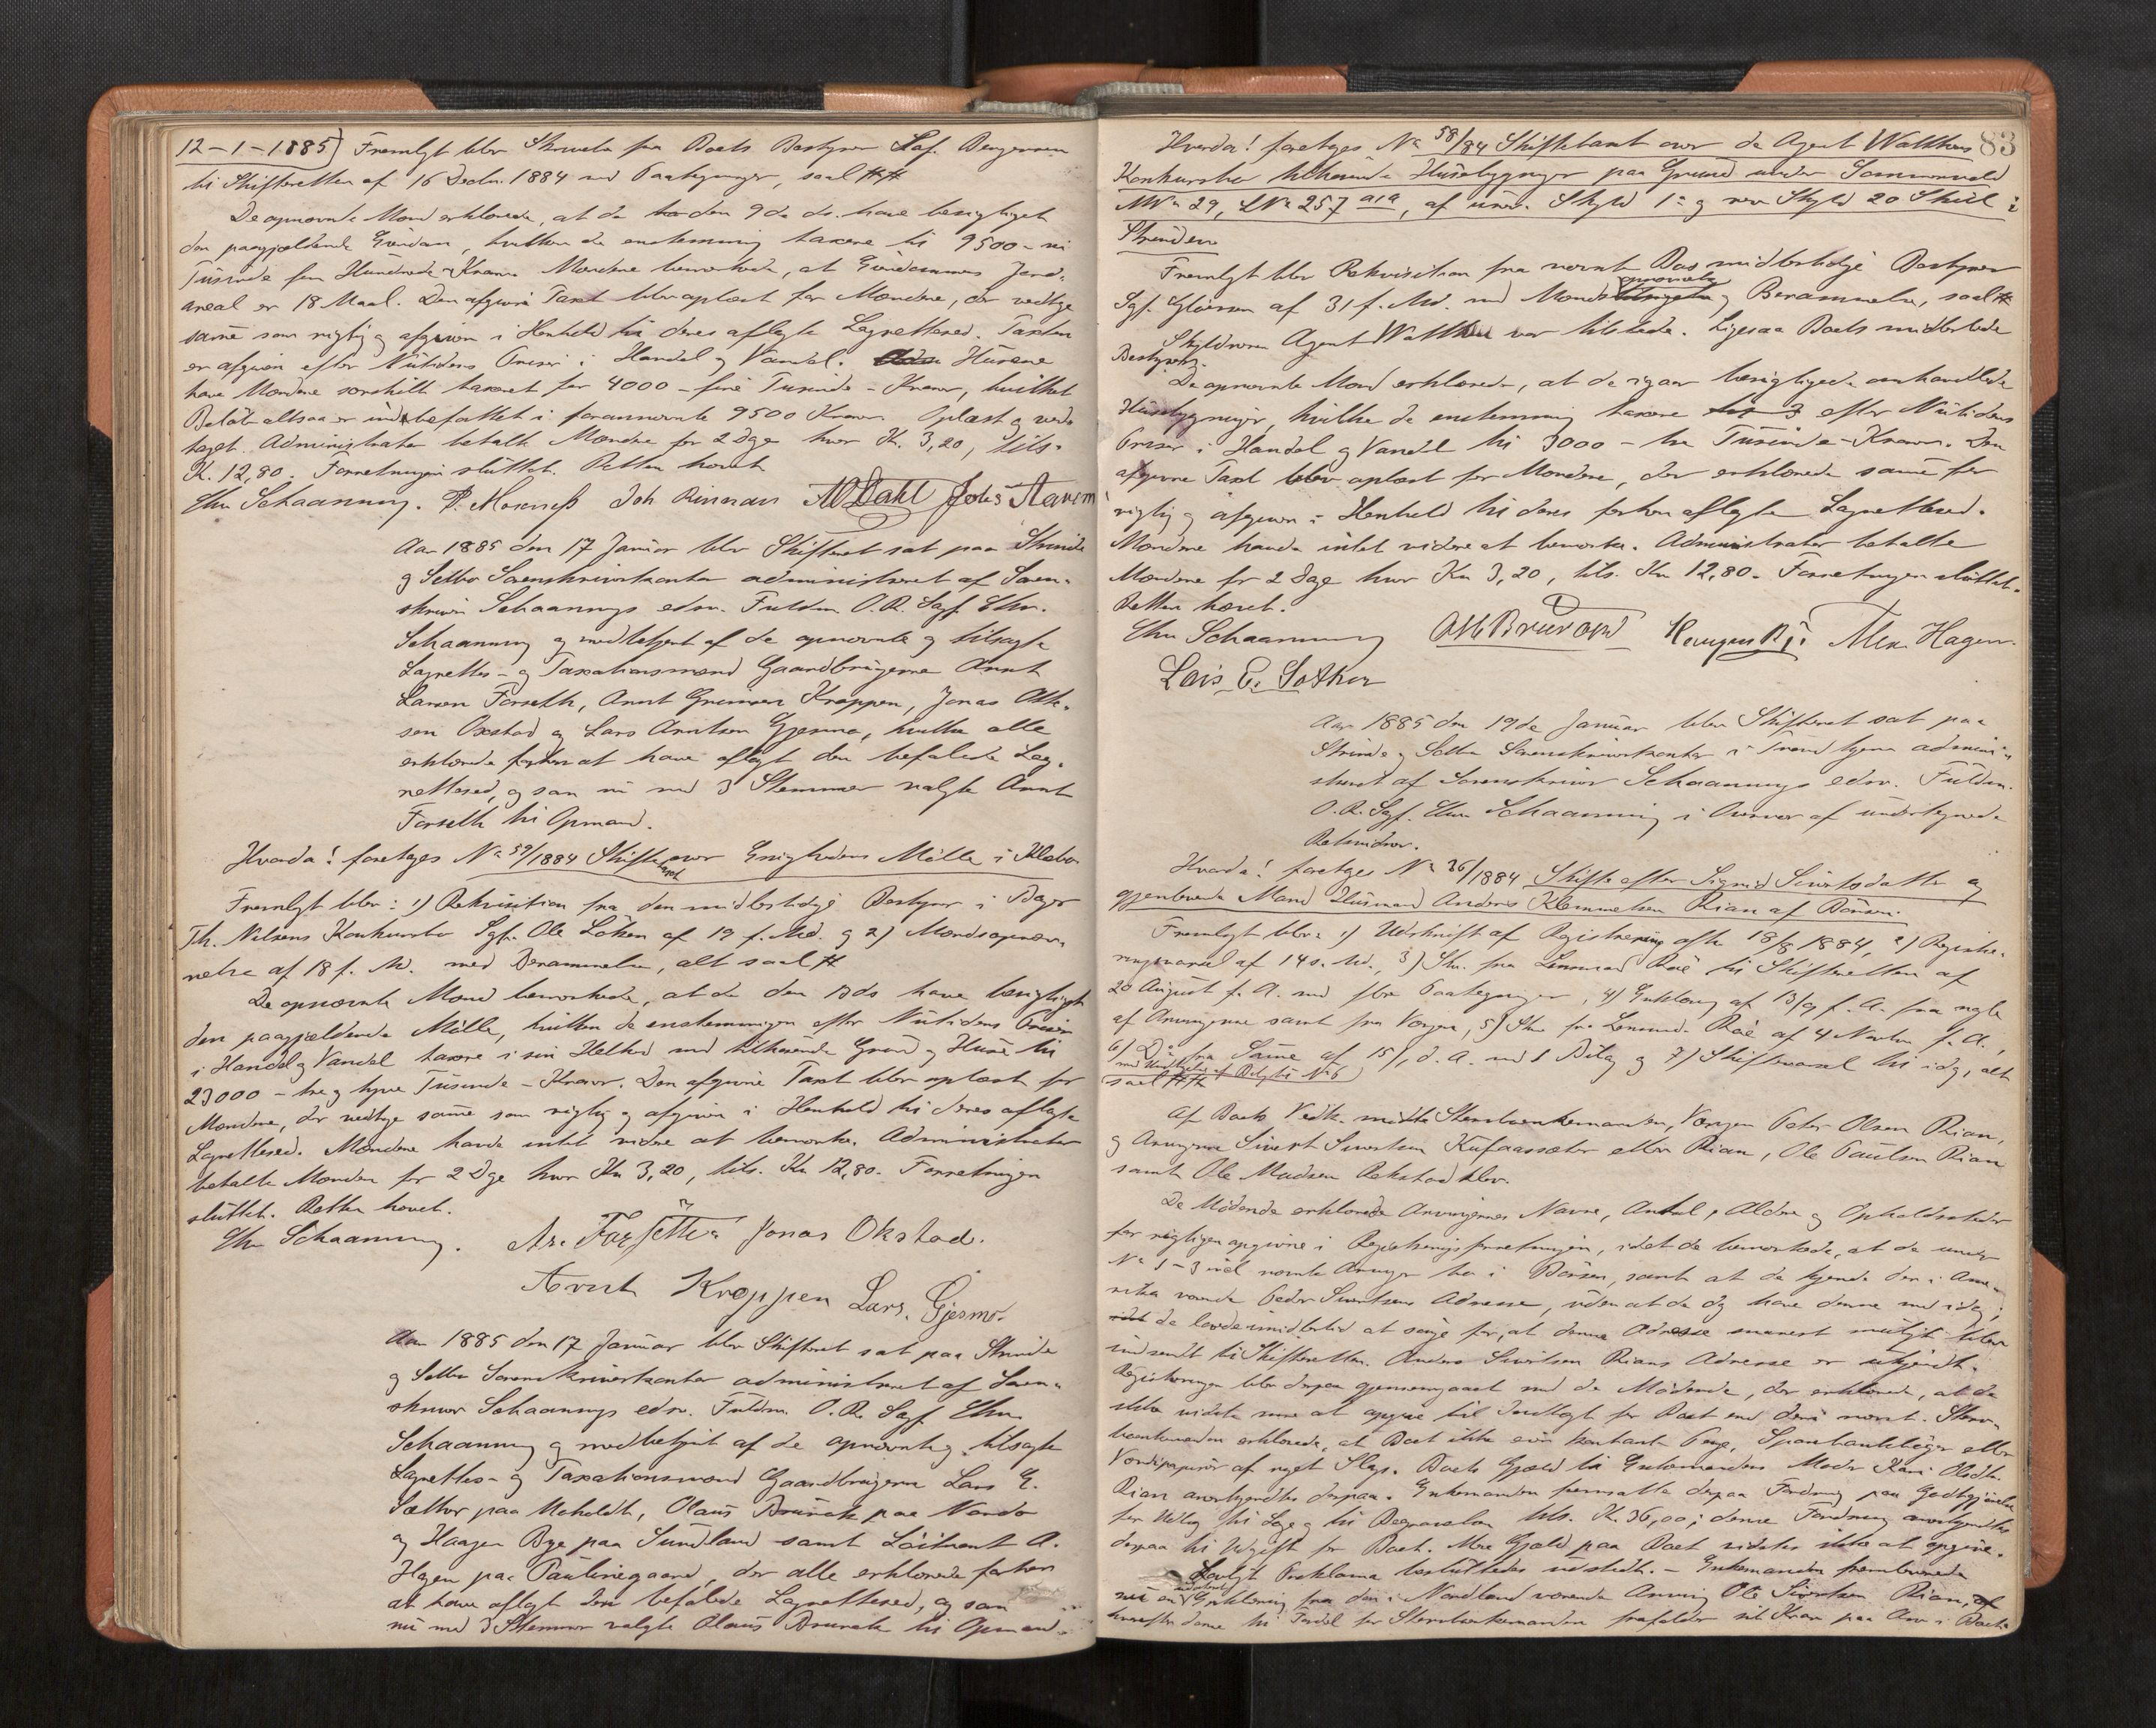 12-1-1885) Fremlagt blev Skrivelse fra Boets Bestyrer Sagf. Bergersen
til Skifteretten af 16 Decbr. 1884 med Paategninger, saal. ##
De opnævnte Mænd erklærede, at de den 9de ds. have besigtiget
den paagjældende Gaard, hvilken de enstemmig taxere til 9500 - ni
Tusinde fem Hundrede - Kroner. Mændene bemærkede, at Jord-
areal er 18 Maal. Den afgivne Taxt blev oplæst for Mændene, der vedtoge
samme som rigtig og afgiven i Henhold til deres aflagte Lagrettesed. Taxten
er afgiven efter Nutidens Priser i Handel og Vandel. Husene
have Mændene særskilt taxeret for 4000 - fire Tusinde - Kroner, hvilket
Beløb altsaa er indbefattet i forannævnte 9500 Kroner. Oplæst og ved-
taget. Administrator betalte Mændene for 2 Dage hver Kr. 3,20, tils.
K. 12,80. Forretningen sluttet. Retten hævet.
Chr Schaanning. P. Moxness Joh Rinnan AODahl
Aar 1885 den 17 Januar blev Skifteret sat paa Strinde
og Selbo Sorenskriverkontor administreret af Soren-
skriver Schaannings edsv. Fuldm. O.R. Sagf. Chr.
Schaanning og medbetjent af de opnævnte og tilsagte
Lagrettes- og Taxationsmænd Gaardbrugerne Arnt
Larsen Forseth, Arnt Kroppen, Jonas
Oxstad og Lars Arntsen Gjesmo, hvilke alle
erklærede forhen at have aflagt den befalede Lag-
rettesed, og som nu med 3 Stemmer valgte Arnt
Forseth til Opmand.
Hvorda! foretoges No 59/1884 Skiftetaxt over Enighedens Mølle i Klæbo
Fremlagt blev: 1) Rekvisition fra den midlertidige Bestyrer i Bager
Th. Nilsens Konkursbo Sagf. Ole Løken af 19 f. Md. og 2) Mandsopnæv-
nelse af 18 f. M. med Berammelse, alt saal. #
De opnævnte Mænd bemærkede, at de den 13 ds have besigtiget
den paagjældende Mølle, hvilken de enstemmigen efter Nutidens Priser
i Handel og Vandel taxere i sin Helhed med tilhørende Grund og Huse til
23000 - tre og tyve Tusinde - Kroner. Den afgivne Taxt blev oplæst for
Mændene, der vedtoge samme som rigtig og afgiven i Henhold til deres aflagte
Lagrettesed. Mændene havde intet videre at bemærke. Administrator
betalte Mændene for 2 Dge hver Kr 3,20, tils. Kr. 12,80. Forretningen
sluttet. Retten hævet.
Chr Schaanning. Jonas Okstad.
Arnt Kroppen Lars. Gjesmo.
Aar 1885 den 17 Januar blev Skifteret sat paa Strinde
og Selbo Sorenskriverkontor administreret af Soren-
skriver Schaannings edsv. Fuldm. O.R. Sagf Chr.
Schaanning og medbetjent af de opnævnte og tilsagte
Lagrettes- og Taxationsmænd Gaardbrugerne Lars E.
Sæther paa Moholdt, Olaus Brurok paa Nardo
og Haagen Bye paa Sundland samt Løitnant A.
Hagen paa Paulinegaard, der alle erklærede forhen
at have aflagt den befalede Lagrettesed, og som
nu med 3 Stemmer valgte Olaus Brurok til Opmand.
83
Hvorda! foretoges No 58/84 Skiftetaxt over de Agent Walthers
Konkursbo tilhørende Husebygninger paa Grund under
MNo 29, LNo 257 a1a, af Skyld og Skyld 20 Skill i
Strinden
Fremlagt blev Rekvisition fra nævnte Bos midlertidige Bestyrer
Sgf. af 31 f. Md. med Mands opnævnelse og Berammelse, saal #
Agent Walther var tilstede. Ligesaa Boets midlertidige
Bestyrer.
De opnævnte Mænd erklærede, at de igaar besigtigede omhandlede
Husebygninger, hvilke de enstemmig taxere efter Nutidens
Priser i Handel og Vandel til 3000 - tre Tusinde - Kroner. Den
afgivne Taxt blev oplæst for Mændene, der erklærede samme for
rigtig og afgiven i Henhold til deres forhen aflagte Lagrettesed.
Mændene havde intet videre at bemærke. Administrator betalte
Mændene for 2 Dage hver Kr 3,20, tils. Kr 12,80. Forretningen sluttet.
Retten hævet.
Chr Schaanning Alex. Hagen.
Lars E. Sæther
Aar 1885 den 19de Januar blev Skifteret sat paa
Strinde og Selbo Sorenskriverkontor i Trondhjem admini-
streret af Sorenskriver Schaannings edsv. Fuldm.
O.R. Sgf. Chr. Schaanning i Overvær af undertegnede
Retsvidner.
Hvorda! foretoges No 36/1884 Skifte efter Sigrid Sivertsdatter og
gjenlevende Mand Husmand Anders Klemmetsen Rian af Børsen.
Fremlagt blev: 1) Udskrift af Registrering afh. 18/8 1884, 2) Registre-
ringsvarsel af 14 s. Md., 3) Skr. fra Lensmand til Skifteretten af
20 August f. A. med Paategninger, 4) Erklæring af 13/9 f. A. fra nogle
af Arvingerne samt fra Værgen, 5) Skr. fra Lensmand af 4 Novbr f. A.,
6) Do fra Samme af 15/1 d. A. med 1 Bilag og 7) Skiftevarsel til idag, alt
saal ##
Af Boets Vedk. mødte Stervboenkemanden, Værgen Peter Olsen Rian,
og Arvingerne Sivert Sivertsen eller Rian, Ole Paulsen Rian
samt Ole Madsen
De Mødende erklærede Arvingernes Navne, Antal, Aldre og Opholdssteder
for rigtigen opgivne i Registreringsforretningen, idet de bemærkede, at de under
No 1-3 incl nævnte Arvinger bo i Børsen, samt at de kjende den i Ame-
rika værende Peder Sivertsens Adresse, uden at de dog have denne med idag,
de lovede imidlertid at sørge for, at denne Adresse snarest muligt blev
indsendt til Skifteretten. Anders Sivertsen Rians Adresse er ukjendt.
Registreringen blev derpaa gjennemgaaet med de Mødende, der erklærede, at de
ikke vidste mere at opgive til Indtægt for Boet end deri nævnt. Sterv-
boenkemanden erklærede, at Boet ikke eier kontante Penge, Sparebankbøger eller
Værdipapirer af noget Slags. Boets Gjæld til Enkemandens Moder Kari Olsdtr.
Rian anerkjendtes derpaa. Enkemanden fremsatte derpaa Fordring paa Godtgjørelse
for Udlæg til Læge og til Begravelsen tils. K. 36,00; denne Fordring anerkjendtes
derpaa til Udgift for Boet. Mere Gjæld paa Boet vidstes ikke at opgive.
Lovligt Proklama besluttedes udstedt. - Enkemanden fremleverede
nu en Erklæring fra den i Nordland værende Arving Ole Sivertsen Rian,
hvorefter denne til Fordel for Stervboenkemanden frafalder sit Krav paa Arv i Boet.